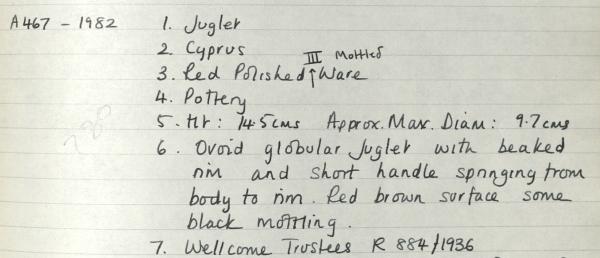 A467 - 1982 1. Juglet
2. Cyprus
3. Red Polished ↑ III Mottled Ware
4. Pottery
5. Ht: 14.5cms Approx. Max. Diam: 9.7cms
6. Ovoid globular Juglet with beaked
rim and short handle springing from
body to rim. Red brown surface some
black mottling.
7. Wellcome Trustees R 884/1936